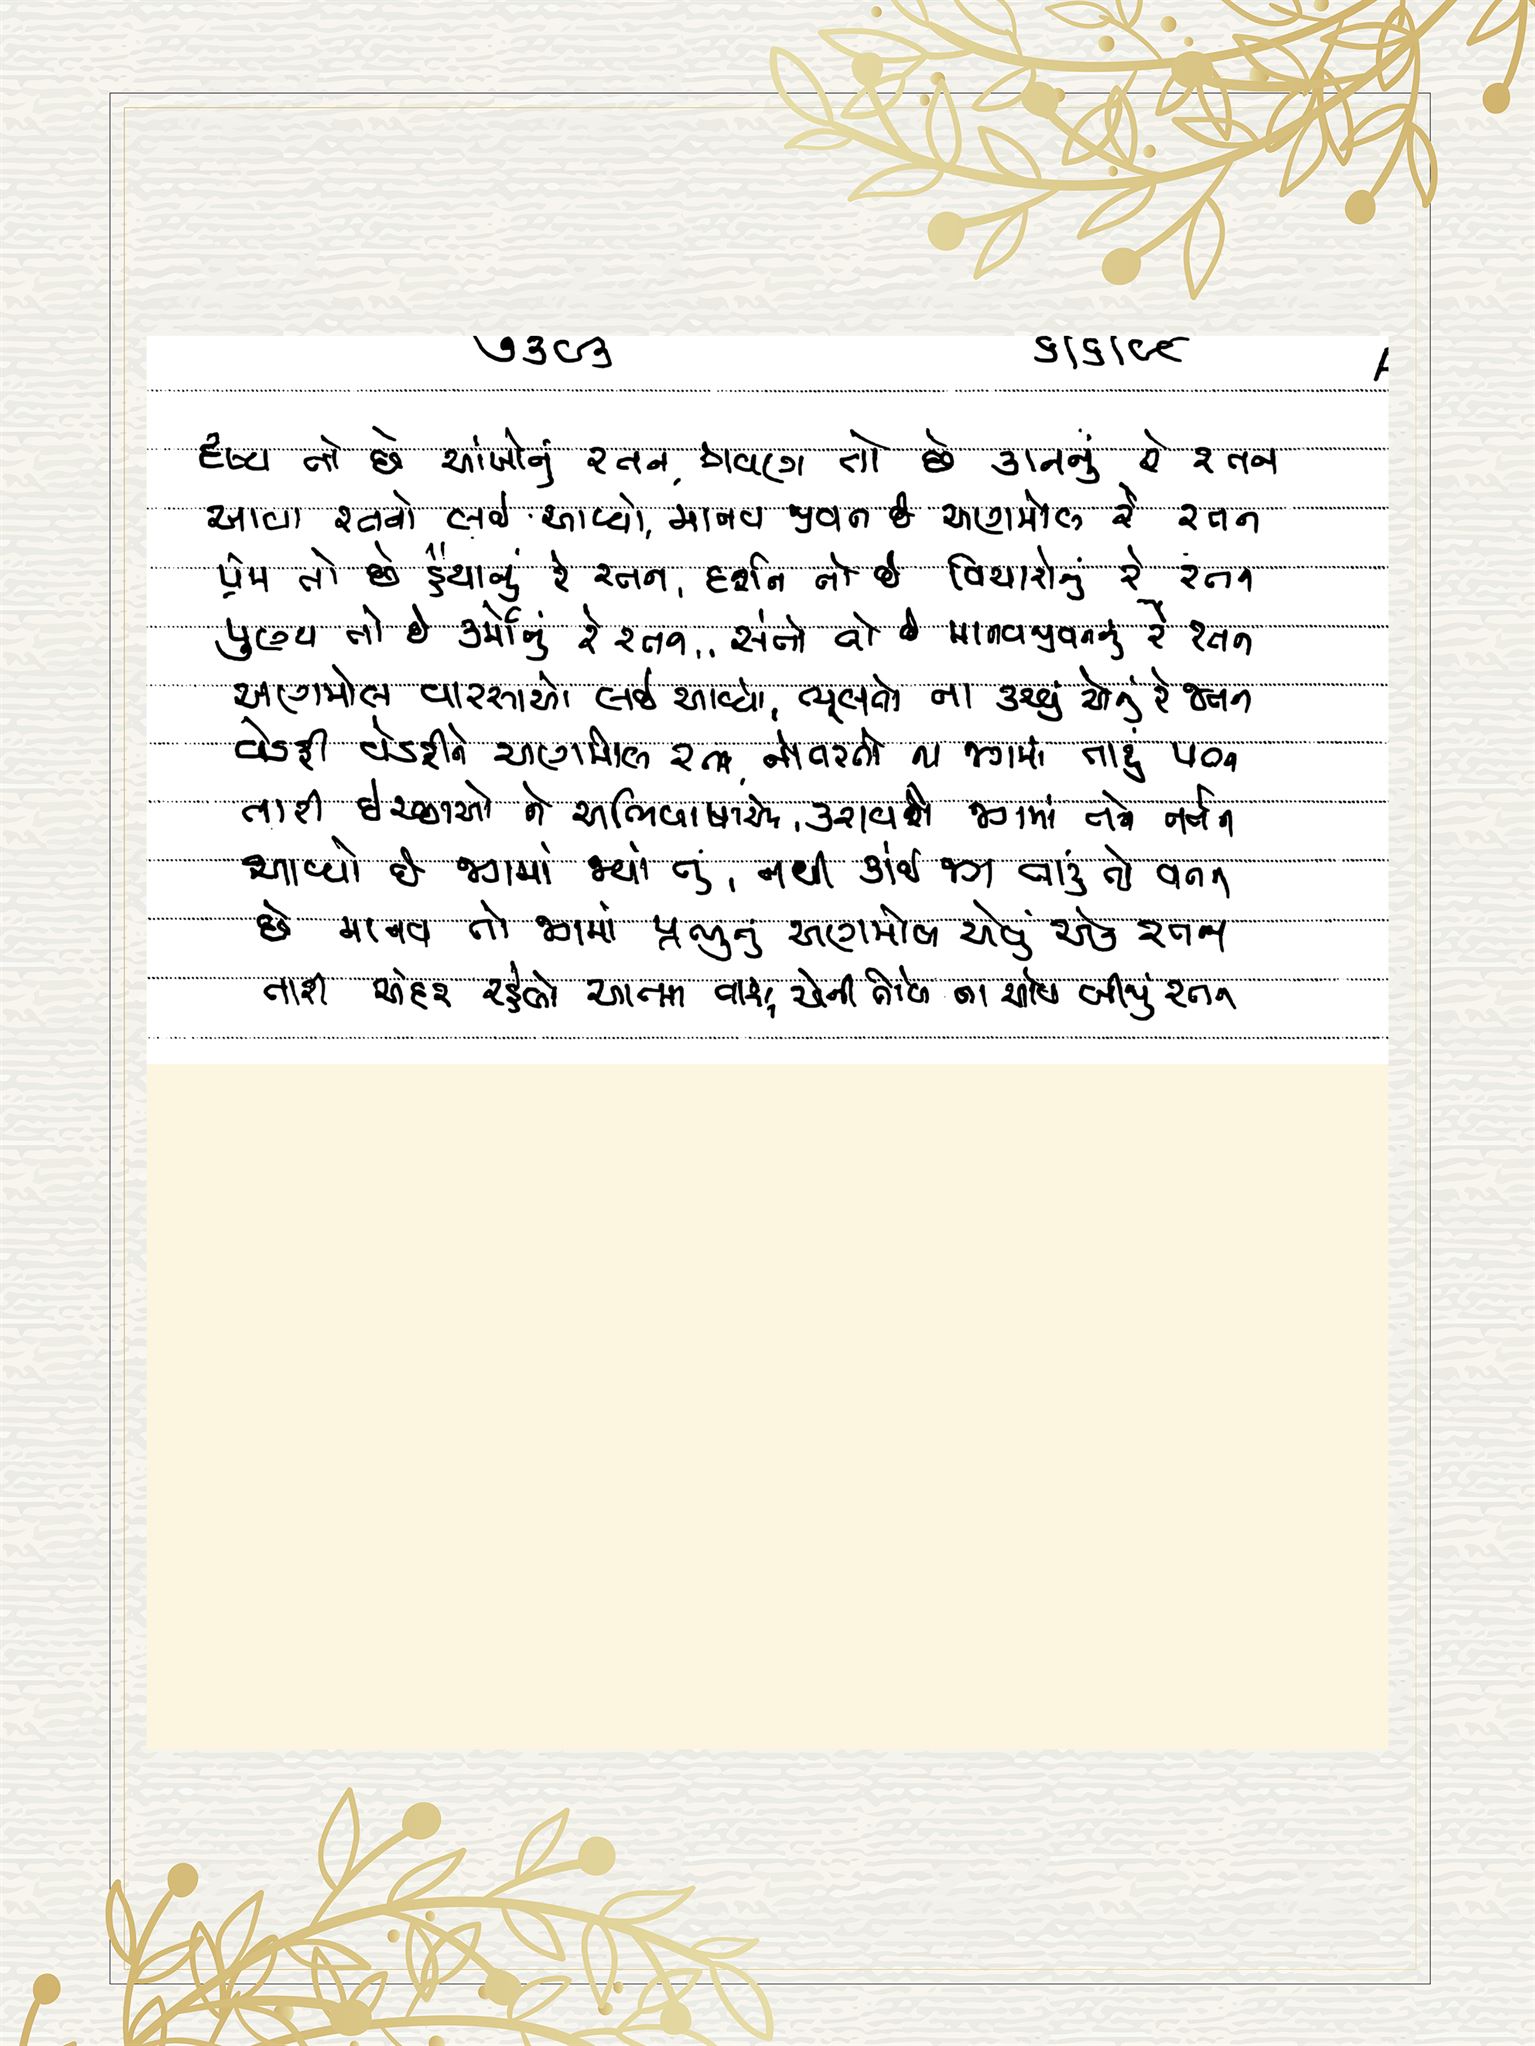 ૭૩૯૩ ૬|૬|૯૮
દૃષ્ય તો છે આંખોનું રતન, શ્રવણ તો છે કાનનું રે રતન
આવા રતનો લઈ આવ્યો, માનવ જીવન છે અણમોલ રે રતન
પ્રેમ તો છે હૈયાનું રે રતન, દર્શન તો છે વિચારોનું રે રતન
પુણ્ય તો છે કર્મોનું રે રતન.. સંતો તો છે માનવજીવનનું રે રતન
અણમોલ વારસાઓ લઈ આવ્યો, ભૂલતો ના કરવું એનું રે જતન
વેડફી વેડફીને અણમોલ રતન, નોતરતો ના જગમાં તારું પતન
તારી ઇચ્છાઓ ને અભિલાષાઓ, કરાવશે જગમાં તને નર્તન
આવ્યો છે જગમાં જ્યાં તું, નથી કાંઈ જગ તારું તો વતન
છે માનવ તો જગમાં પ્રભુનું અણમોલ એવું એક રતન
તારી અંદર રહેલો આત્મા તારો, એની તોલે ના આવે બીજું રતન